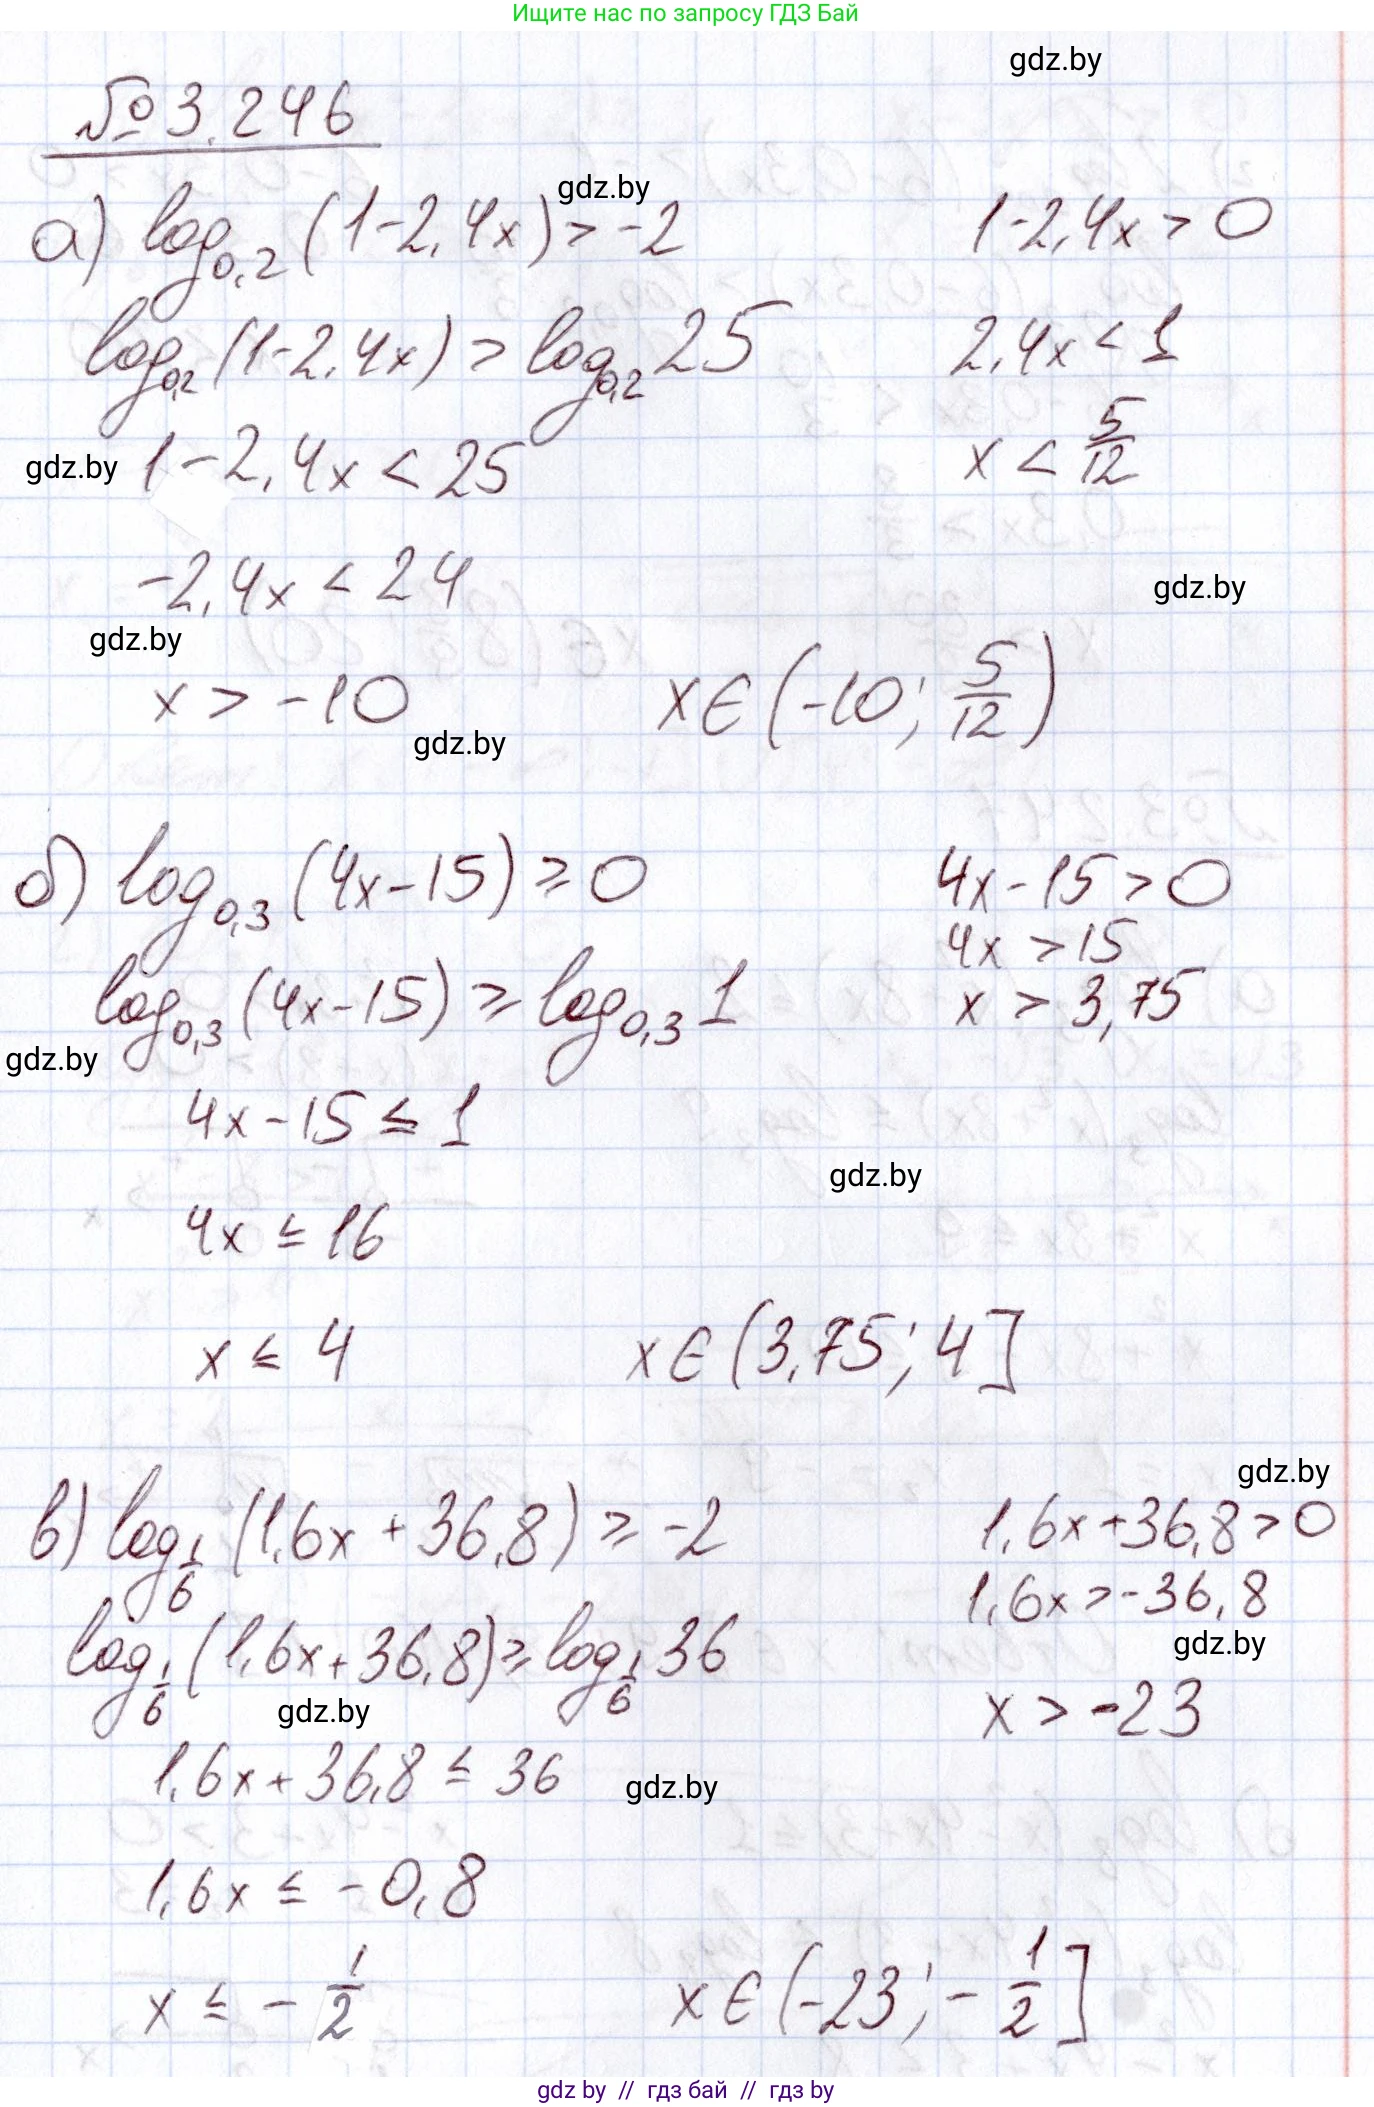 Ищите нас по запросу ГДЗ Бай
gdz.by
№3.246
gdz.by
а) log₀,₂(1-2,4x) > -2
1-2,4x > 0
log₀,₂(1-2,4x) > log₀,₂25
2,4x < 1
gdz.by
1-2,4x < 25
x < 5/12
-2,4x < 24
gdz.by
gdz.by
x > -10
x ∈ (-10; 5/12)
gdz.by
б) log₀,₃(4x-15) ≥ 0
4x-15 > 0
4x > 15
log₀,₃(4x-15) ≥ log₀,₃1
x > 3,75
gdz.by
4x-15 ≤ 1
gdz.by
4x ≤ 16
x ≤ 4
x ∈ (3,75; 4]
gdz.by
в) log_1/6(1,6x+36,8) ≥ -2
1,6x+36,8 > 0
1,6x > -36,8
log_1/6(1,6x+36,8) ≥ log_1/6 36
gdz.by
gdz.by
x > -23
1,6x+36,8 ≤ 36
gdz.by
1,6x ≤ -0,8
x ≤ -1/2
x ∈ (-23; -1/2]
gdz by // гдз бай // гдз by